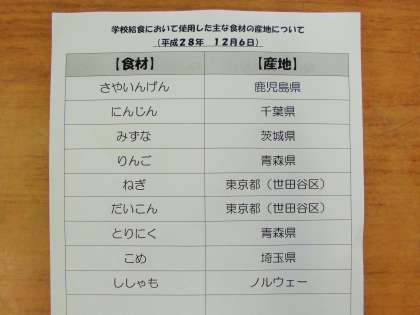 学校給食において使用した主な食材の産地について
（平成２８年　１２月６日）
【食材】　【産地】
さやいんげん　鹿児島県
にんじん　千葉県
みずな　茨城県
りんご　青森県
ねぎ　東京都（世田谷区）
だいこん　東京都（世田谷区）
とりにく　青森県
こめ　埼玉県
ししゃも　ノルウェー